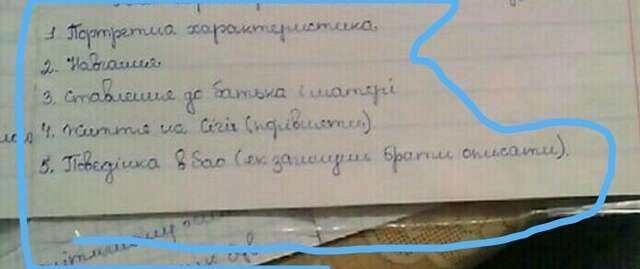 1. Портретна характеристика.
2. Навчання
3. Ставлення до батька і матері
4. Життя на Січі (порівняти)
5. Поведінка в бою (як загинули брати описати).